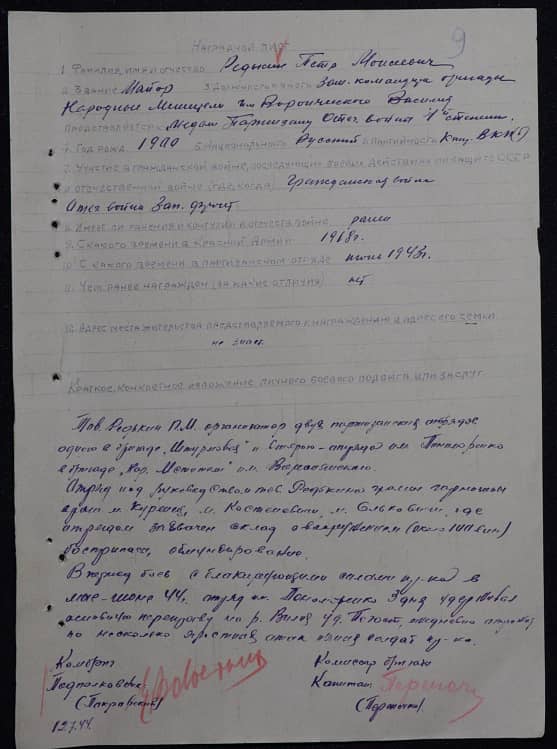 9
НАГРАДНОЙ ЛИСТ
1. ФАМИЛИЯ, ИМЯ И ОТЧЕСТВО Редькин Петр Моисеевич
2. ЗВАНИЕ Майор 3. ДОЛЖНОСТЬ Зам. командира бригады
Народные Мстители им. Воронянского
ПРЕДСТАВЛЯЕТСЯ к Медали Партизану Отеч. войны 1 степени
4. ГОД РОЖД. 1900 5. НАЦИОНАЛЬНОСТЬ Русский 6. ПАРТИЙНОСТЬ ВКП(б)
7. УЧАСТИЕ В ГРАЖДАНСКОЙ ВОЙНЕ, ПОСЛЕДУЮЩИХ БОЕВЫХ ДЕЙСТВИЯХ ПО ЗАЩИТЕ СССР
И ОТЕЧЕСТВЕННОЙ ВОЙНЕ (ГДЕ, КОГДА) Гражданская война
Отеч. война Зап. фронт
8. ИМЕЕТ ЛИ РАНЕНИЯ И КОНТУЗИИ В ОТЕЧЕСТ. ВОЙНЕ ранен
9. С КАКОГО ВРЕМЕНИ В КРАСНОЙ АРМИИ 1918г.
10. С КАКОГО ВРЕМЕНИ В ПАРТИЗАНСКОМ ОТРЯДЕ 1943г.
11. ЧЕМ РАНЕЕ НАГРАЖДЕН (ЗА КАКИЕ ОТЛИЧИЯ) нет
12. АДРЕС МЕСТА ЖИТЕЛЬСТВА ПРЕДСТАВЛЯЕМОГО К НАГРАЖДЕНИЮ И АДРЕС ЕГО СЕМЬИ
не знает
КРАТКОЕ, КОНКРЕТНОЕ ИЗЛОЖЕНИЕ ЛИЧНОГО БОЕВОГО ПОДВИГА ИЛИ ЗАСЛУГ
Тов. Редькин П.М. организатор двух партизанских отрядов
одного в бригаде "Штурмовая" и второго отряда им.
в бригаде "Нар. Мстители" им. Воронянского.
Отряд под руководством тов. Редькина громил гарнизоны
врага м. Куренец, м. Костеневичи, м. где
отрядом захвачен склад с вооружением
боеприпасы, обмундирование.
В период боев с блокирующими силами пр-ка в
мае-июне 44г. отряд им. 3 дня удерживал
переправу на р. Вилия ежедневно отражая
по несколько яростных атак солдат пр-ка.
Комбриг Комиссар бригады
Подполковник Капитан
19.7.44.